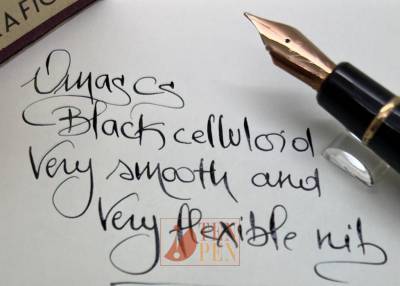 A FIO
Omas CS
Black celluloid
Very smooth and
Very flexible nib
PEN